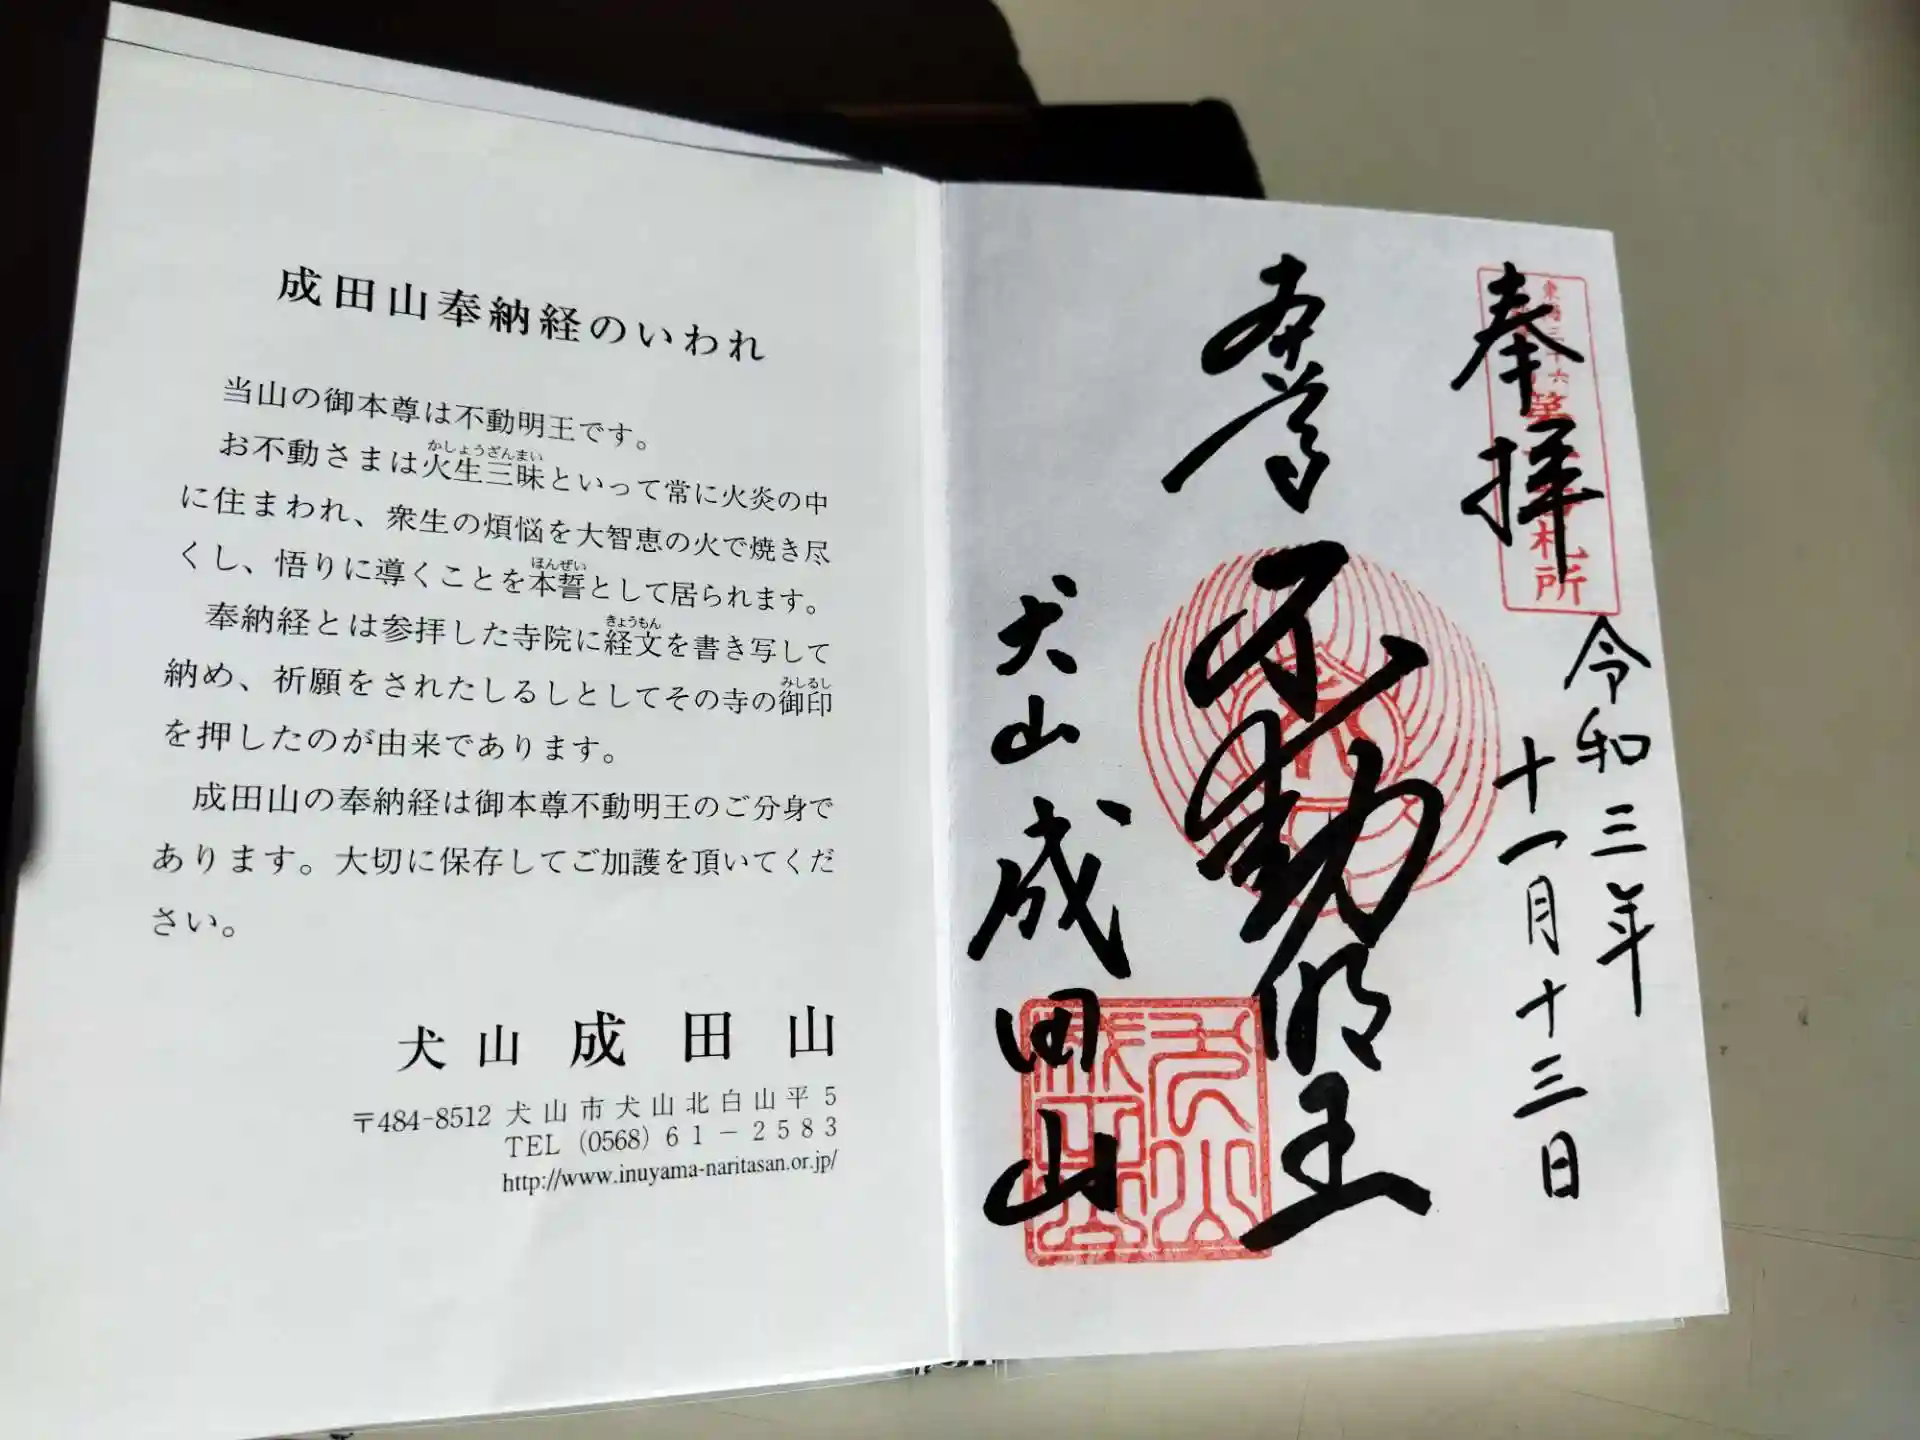 成田山奉納経のいわれ
当山の御本尊は不動明王です。
お不動さまは火生三昧といって常に火炎の中
かしょうざんまい
に住まわれ、衆生の煩悩を大智恵の火で焼き尽
くし、悟りに導くことを本誓として居られます。
ほんぜい
奉納経とは参拝した寺院に経文を書き写して
きょうもん
納め、祈願をされたしるしとしてその寺の御印
みしるし
を押したのが由来であります。
成田山の奉納経は御本尊不動明王のご分身で
あります。大切に保存してご加護を頂いてくだ
さい。
犬山 成田山
〒484-8512 犬山市犬山北白山平5
TEL (0568) 61-2583
http://www.inuyama-naritasan.or.jp/
奉拝
札所
令和三年
十一月十三日
本尊
不動明王
犬山成田山